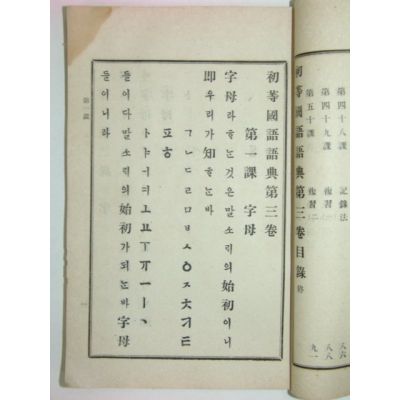 第四十八課 記錄法 八六
第四十九課 複習(一) 八八
第五十課 複習(二) 九一
初等國語語典第三卷目錄 終
初等國語語典第三卷
第一課 字母
字母라ᄒᆞᄂᆞᆫ것은말소릐의始初이니
即우리가知ᄒᆞᄂᆞᆫ바
ㄱㄴㄷㄹㅁㅂㅅㅇㅈㅊㅋㅌ
ㅍㅎ
ㅏㅑㅓㅕㅗㅛㅜㅠㅡㅣㆍ
들이다말소릐의始初가되ᄂᆞᆫ바字母
들이니라
第一課